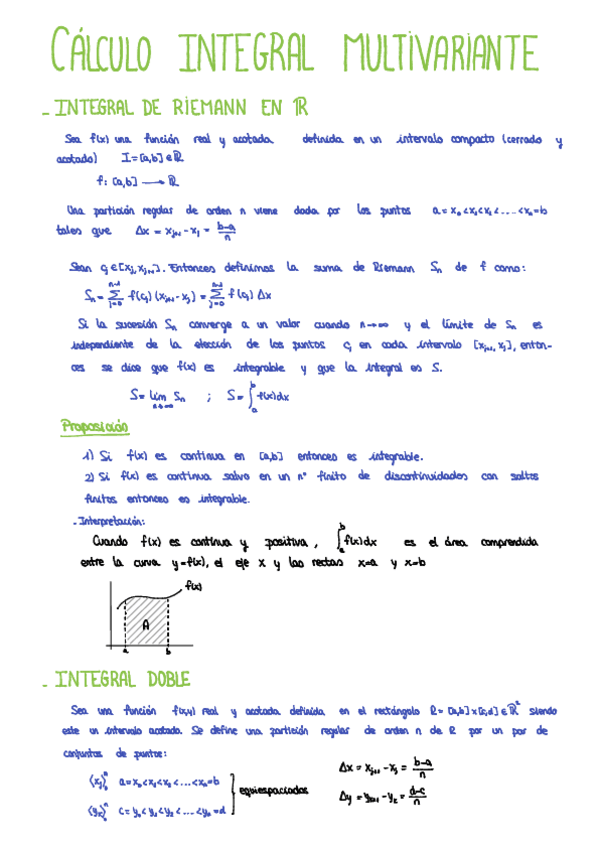 CÁLCULO INTEGRAL MULTIVARIANTE
- INTEGRAL DE RIEMANN EN ℝ
Sea f(x) una función real y acotada definida en un intervalo compacto (cerrado y
acotado) I=[a,b]∈ℝ
f: [a,b] → ℝ
Una partición regular de orden n viene dada por los puntos a=x₀<x₁<x₂<....<xₙ=b
tales que Δx = xⱼ₊₁-xⱼ = (b-a)/n
Sean cⱼ∈[xⱼ,xⱼ₊₁]. Entonces definimos la suma de Riemann Sₙ de f como:
Sₙ = ∑_{j=0}^{n-1} f(cⱼ)(xⱼ₊₁-xⱼ) = ∑_{j=0}^{n-1} f(cⱼ) Δx
Si la sucesión Sₙ converge a un valor cuando n→∞ y el límite de Sₙ es
independiente de la elección de los puntos cⱼ en cada intervalo [xⱼ₊₁,xⱼ], enton-
ces se dice que f(x) es integrable y que la integral es S.
S = lim_{n→∞} Sₙ ; S = ∫ₐᵇ f(x)dx
Proposición
1) Si f(x) es continua en [a,b] entonces es integrable.
2) Si f(x) es continua salvo en un nº finito de discontinuidades con saltos
finitos entonces es integrable.
- Interpretación:
Cuando f(x) es continua y positiva, ∫ₐᵇ f(x)dx es el área comprendida
entre la curva y=f(x), el eje X y las rectas x=a y x=b
f(x)
A
a b
- INTEGRAL DOBLE
Sea una función f(x,y) real y acotada definida en el rectángulo R=[a,b]x[c,d]∈ℝ² siendo
este un intervalo acotado. Se define una partición regular de orden n de R por un par de
conjuntos de puntos:
a=x₀<x₁<x₂<...<xₙ=b
c=y₀<y₁<y₂<...<yₙ=d
equiespaciados
Δx = xⱼ₊₁-xⱼ = (b-a)/n
Δy = = (d-c)/n